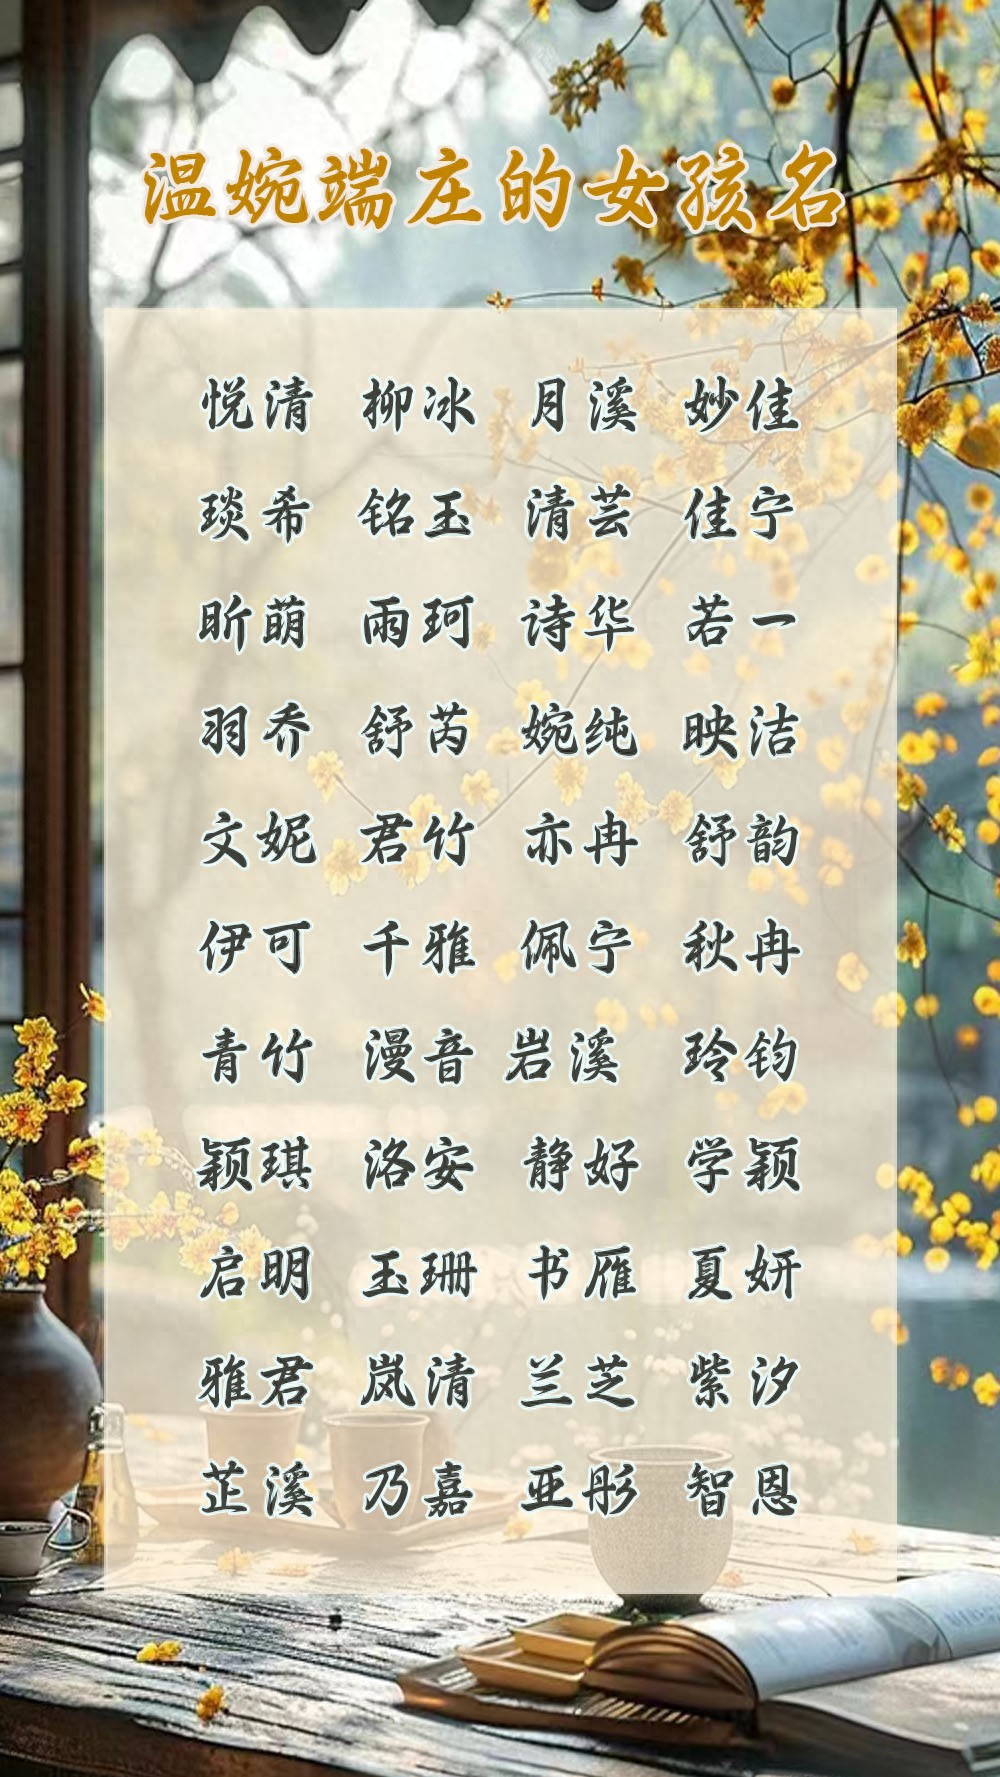 温婉端庄的女孩名
悦清 柳冰 月溪 妙佳
琰希 铭玉 清芸 佳宁
昕萌 雨珂 诗华 若一
羽乔 舒芮 婉纯 映洁
文妮 君竹 亦冉 舒韵
伊可 千雅 佩宁 秋冉
青竹 漫音 岩溪 玲钧
颖琪 洛安 静好 学颖
启明 玉珊 书雁 夏妍
雅君 岚清 兰芝 紫汐
芷溪 乃嘉 亚彤 智恩